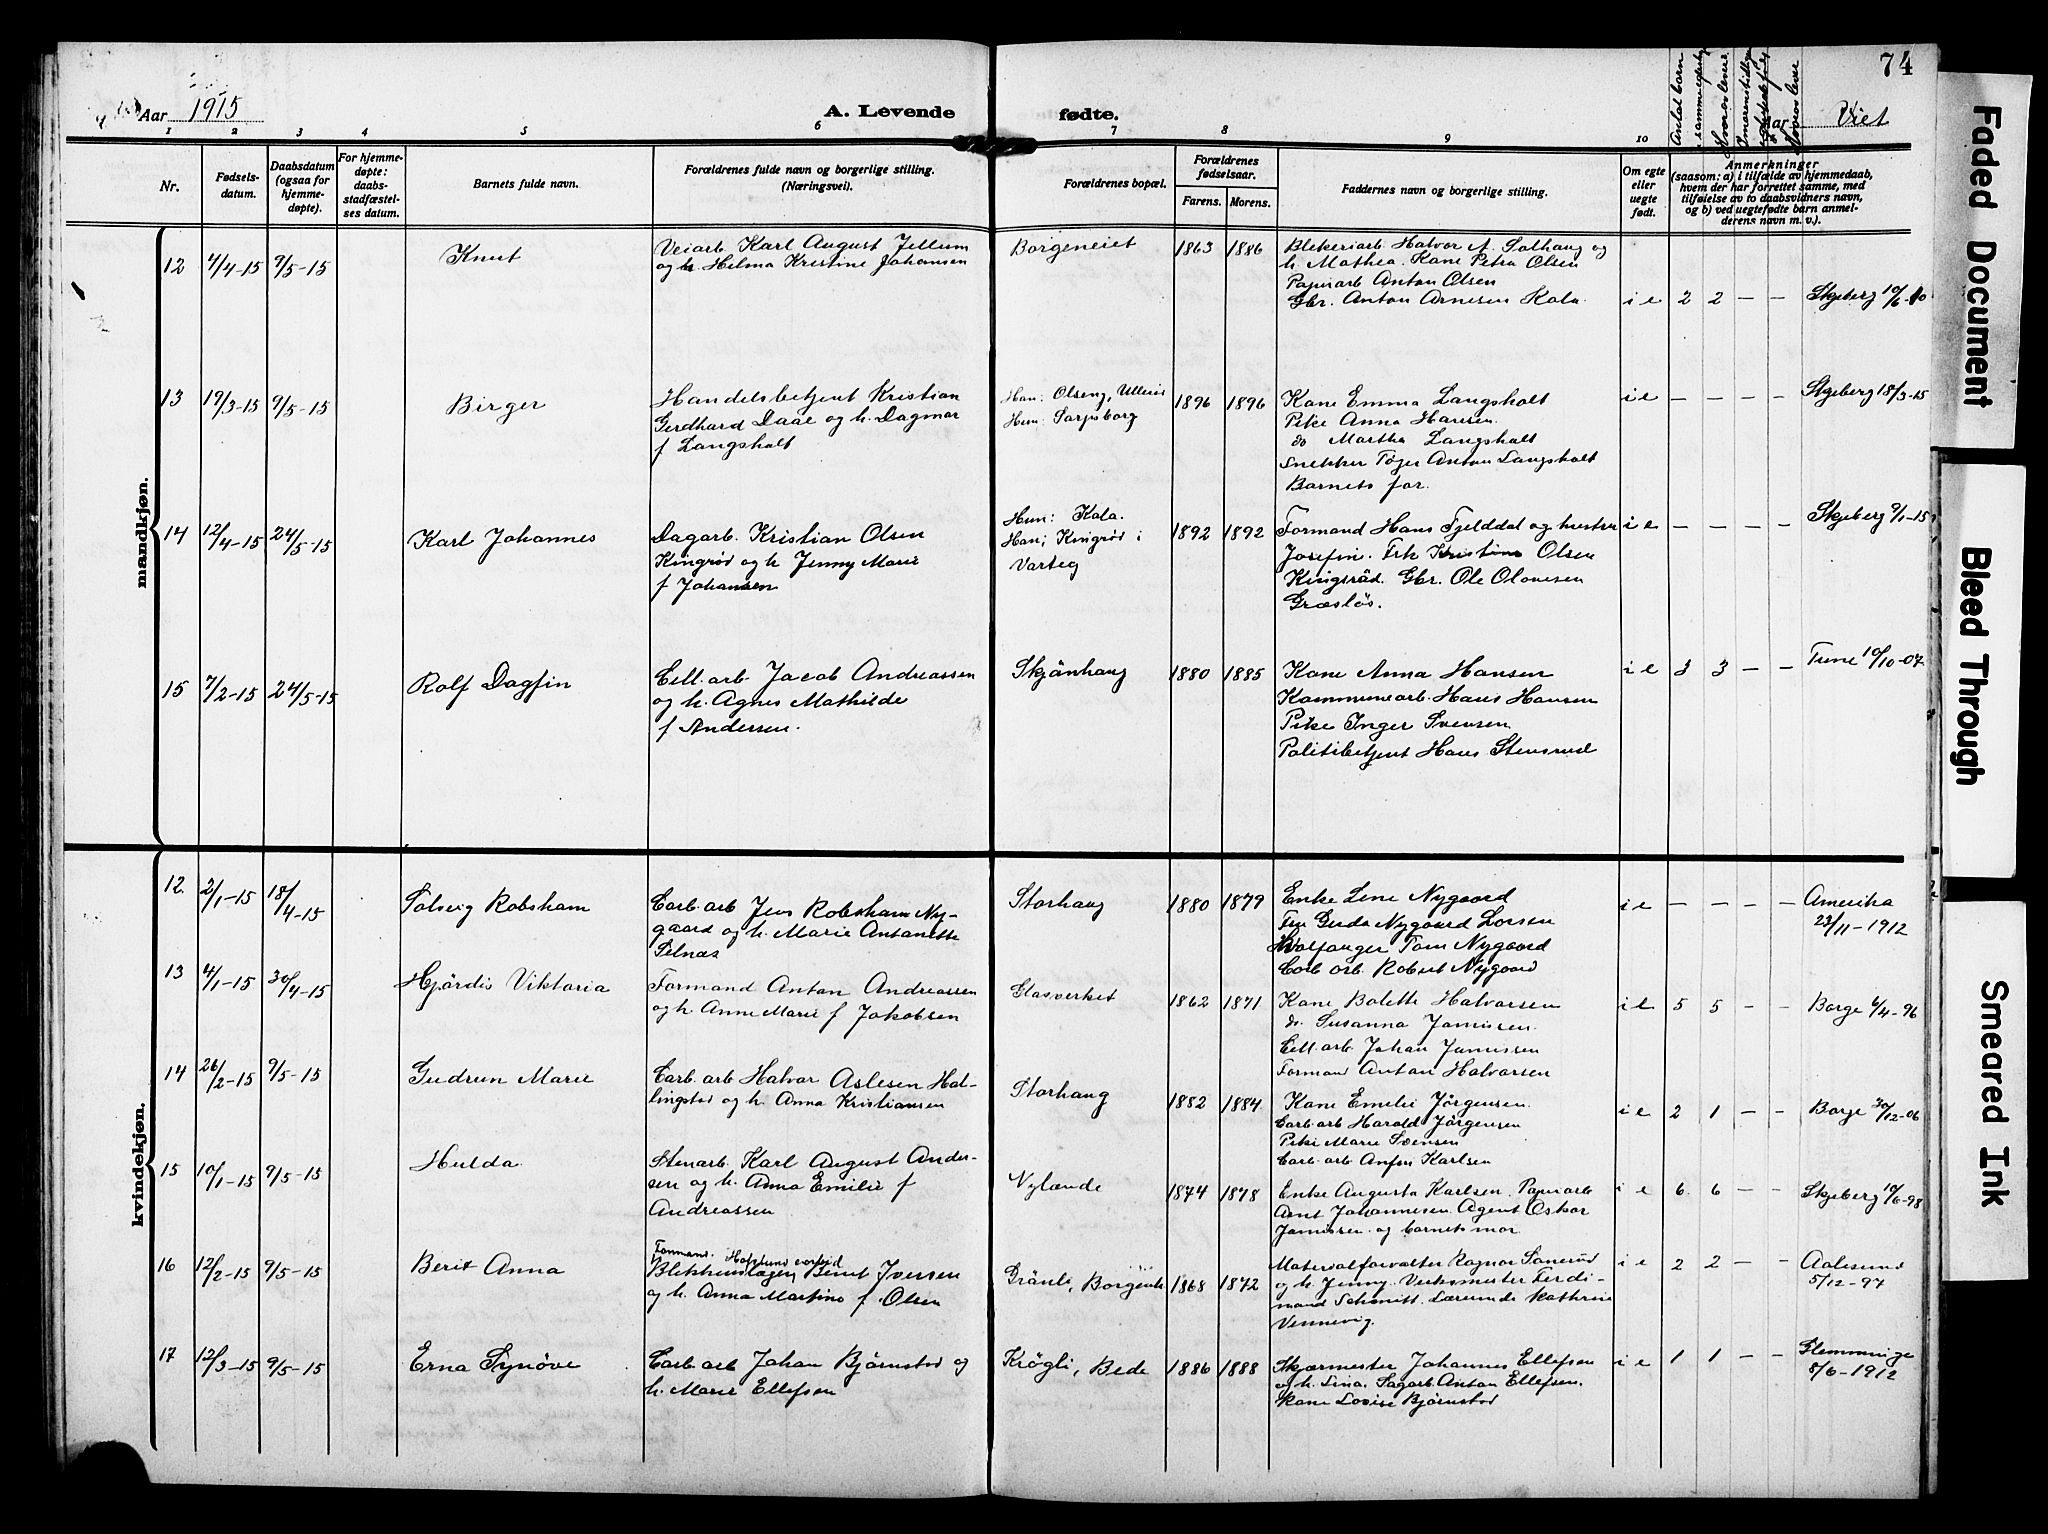 Aar 1915
A. Levende
fødte.
74
Aar Viet
1 2 3 4 5 6 7 8 9 10
Nr.
Fødsels-
datum.
Daabsdatum
(ogsaa for
hjemme-
døpte).
For hjemme-
døpte:
daabs-
stadfæstel-
ses datum.
Barnets fulde navn.
Forældrenes fulde navn og borgerlige stilling.
(Næringsvei).
Forældrenes bopæl.
Forældrenes
fødselsaar.
Farens. Morens.
Faddernes navn og borgerlige stilling.
Om egte
eller
uegte
født.
Anmerkninger
(saasom: a) i tilfælde av hjemmedaab,
hvem der har forrettet samme, med
tilføielse av to daabsvidners navn,
og b) ved uegtefødte barn anmel-
derens navn m. v.).
Antal barn
mandkjøn.
12 4/4-15 9/5-15
Knut
Veiarb. Karl August Jellum
og h. Helma Kristine Johansen
Borgeneiet
1863 1886
Blekeriarb Halvor A. Solhaug og
h. Mathea. Kone Petra Olsen
Papirarb Anton Olsen
Gbr. Anton Arnesen Kala.
i e 2 2 — — Skjeberg 10/6-10
13 19/3-15 9/5-15
Birger
Handelsbetjent Kristian
Gerdhard Daae og h. Dagmar
f Langsholt
Han: Olseng, Ullerø
Hun: Sarpsborg
1896 1896
Kone Emma Langsholt
Pike Anna Hansen
do Martha Langsholt
Snekker Tøger Anton Langsholt
Barnets far.
i e — — — — Skjeberg 18/3-15
14 12/4-15 24/5-15
Karl Johannes
Dagarb. Kristian Olsen
Kingrød og h Jenny Marie
f Johansen
Hun: Kala.
Han; Kingrød i
Varteig
1892 1892
Formand Hans Fjelddal og hustru
Josefin. Frk Kristine Olsen
Kingsrød. Gbr. Ole Olavesen
Græsløs.
i e — — — — Skjeberg 9/1-15
15 7/2-15 24/5-15
Rolf Dagfin
Cell. arb. Jacob Andreassen
og h. Agnes Mathilde
f Andersen.
Skjönhaug
1880 1885
Kone Anna Hansen
Kommunearb. Hans Hansen
Pike Inger Svensen
Politibetjent Hans Stensrud
i e 3 3 — — Tune 10/10-07
kvindekjøn.
12. 2/1-15 18/4-15
Solveig Robsham
Carb. arb Jens Robsham Ny-
gaard og h. Marie Antonette
Pelnæs
Storhaug
1880 1879
Enke Lene Nygaard
Fru Gerda Nygaard Lorsen
Hvalfanger Tom Nygaard
Carb. arb. Robert Nygaard
i e — — — — Amerika
23/11-1912
13 4/1-15 30/4-15
Hjördis Viktoria
Formand Anton Andreassen
og h. Anne Marie f Jakobsen
Glasverket
1862 1871
Kone Bolette Halvorsen
do. Susanna Jamissen.
Cell. arb. Johan Jamissen
Formand Anton Halvorsen
i e 5 5 — — Borge 6/4-96
14 26/2-15 9/5-15
Gudrun Marie
Carb. arb Halvor Aslesen Hal-
lingstad og h. Anna Kristiansen
Storhaug
1882 1884.
Kone Emelie Jörgensen.
Carb. arb Harald Jörgensen
Pike Marie Svensen
Carb. arb Anfin Karlsen
i e 2 1 — — Borge 30/12-06
15 10/1-15 9/5-15
Hulda
Stenarb. Karl August Ander-
sen og h. Anna Emilie f
Andreassen
Nylænde
1874 1878
Enke Augusta Karlsen. Papirarb
Arnt Johannesen. Agent Oskar
Jamissen og barnets mor
i e 6 6 — — Skjeberg 19/6-98
16 12/2-15 9/5-15
Berit Anna
Formand.
Bernt Iversen
og h. Anna Martine f. Olsen
Grønli, Borgenh
1868 1872
Materialforvalter Ragnar Sanerud
og h. Jenny. Verksmester Ferdi-
nand Schmitt. Lærerinde Kathrine
Vennevig.
i e 2 2 — — Aalesund
5/12-97
17 12/3-15 9/5-15
Erna Synöve
Carb. arb. Johan Bjørnstad og
h. Marie Ellefsen
Krøgli, Bede
1886 1888
Skjærmester Johannes Ellefsen
og h. Lina. Sagarb. Anton Ellefsen.
Kone Lovise Bjørnstad
i e 1 1 — — Glemminge
8/6-1912
Faded Document
Bleed Through
Smeared Ink